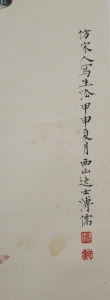 仿宋人寫生法甲申夏月西山逸士溥儒